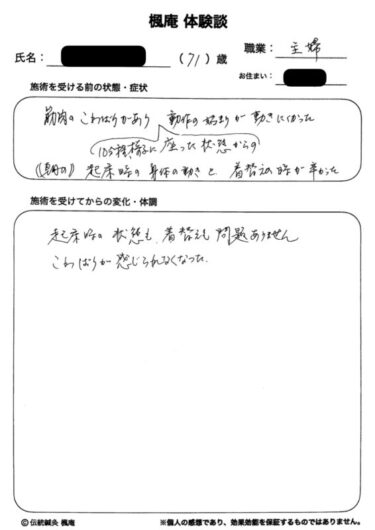 楓庵 体験談
氏名：
（71）歳
職業： 主婦
お住まい：
施術を受ける前の状態・症状
筋肉のこわばりがあり 動作の始まりが動きにくかった
（10分程椅子に座った状態からの
（朝の） 起床時の身体の動きと 着替えの時が辛かった
施術を受けてからの変化・体調
起床時の状態も、着替えも問題ありません
こわばりが感じられなくなった.
© 伝統鍼灸 楓庵
※個人の感想であり、効果効能を保証するものではありません。